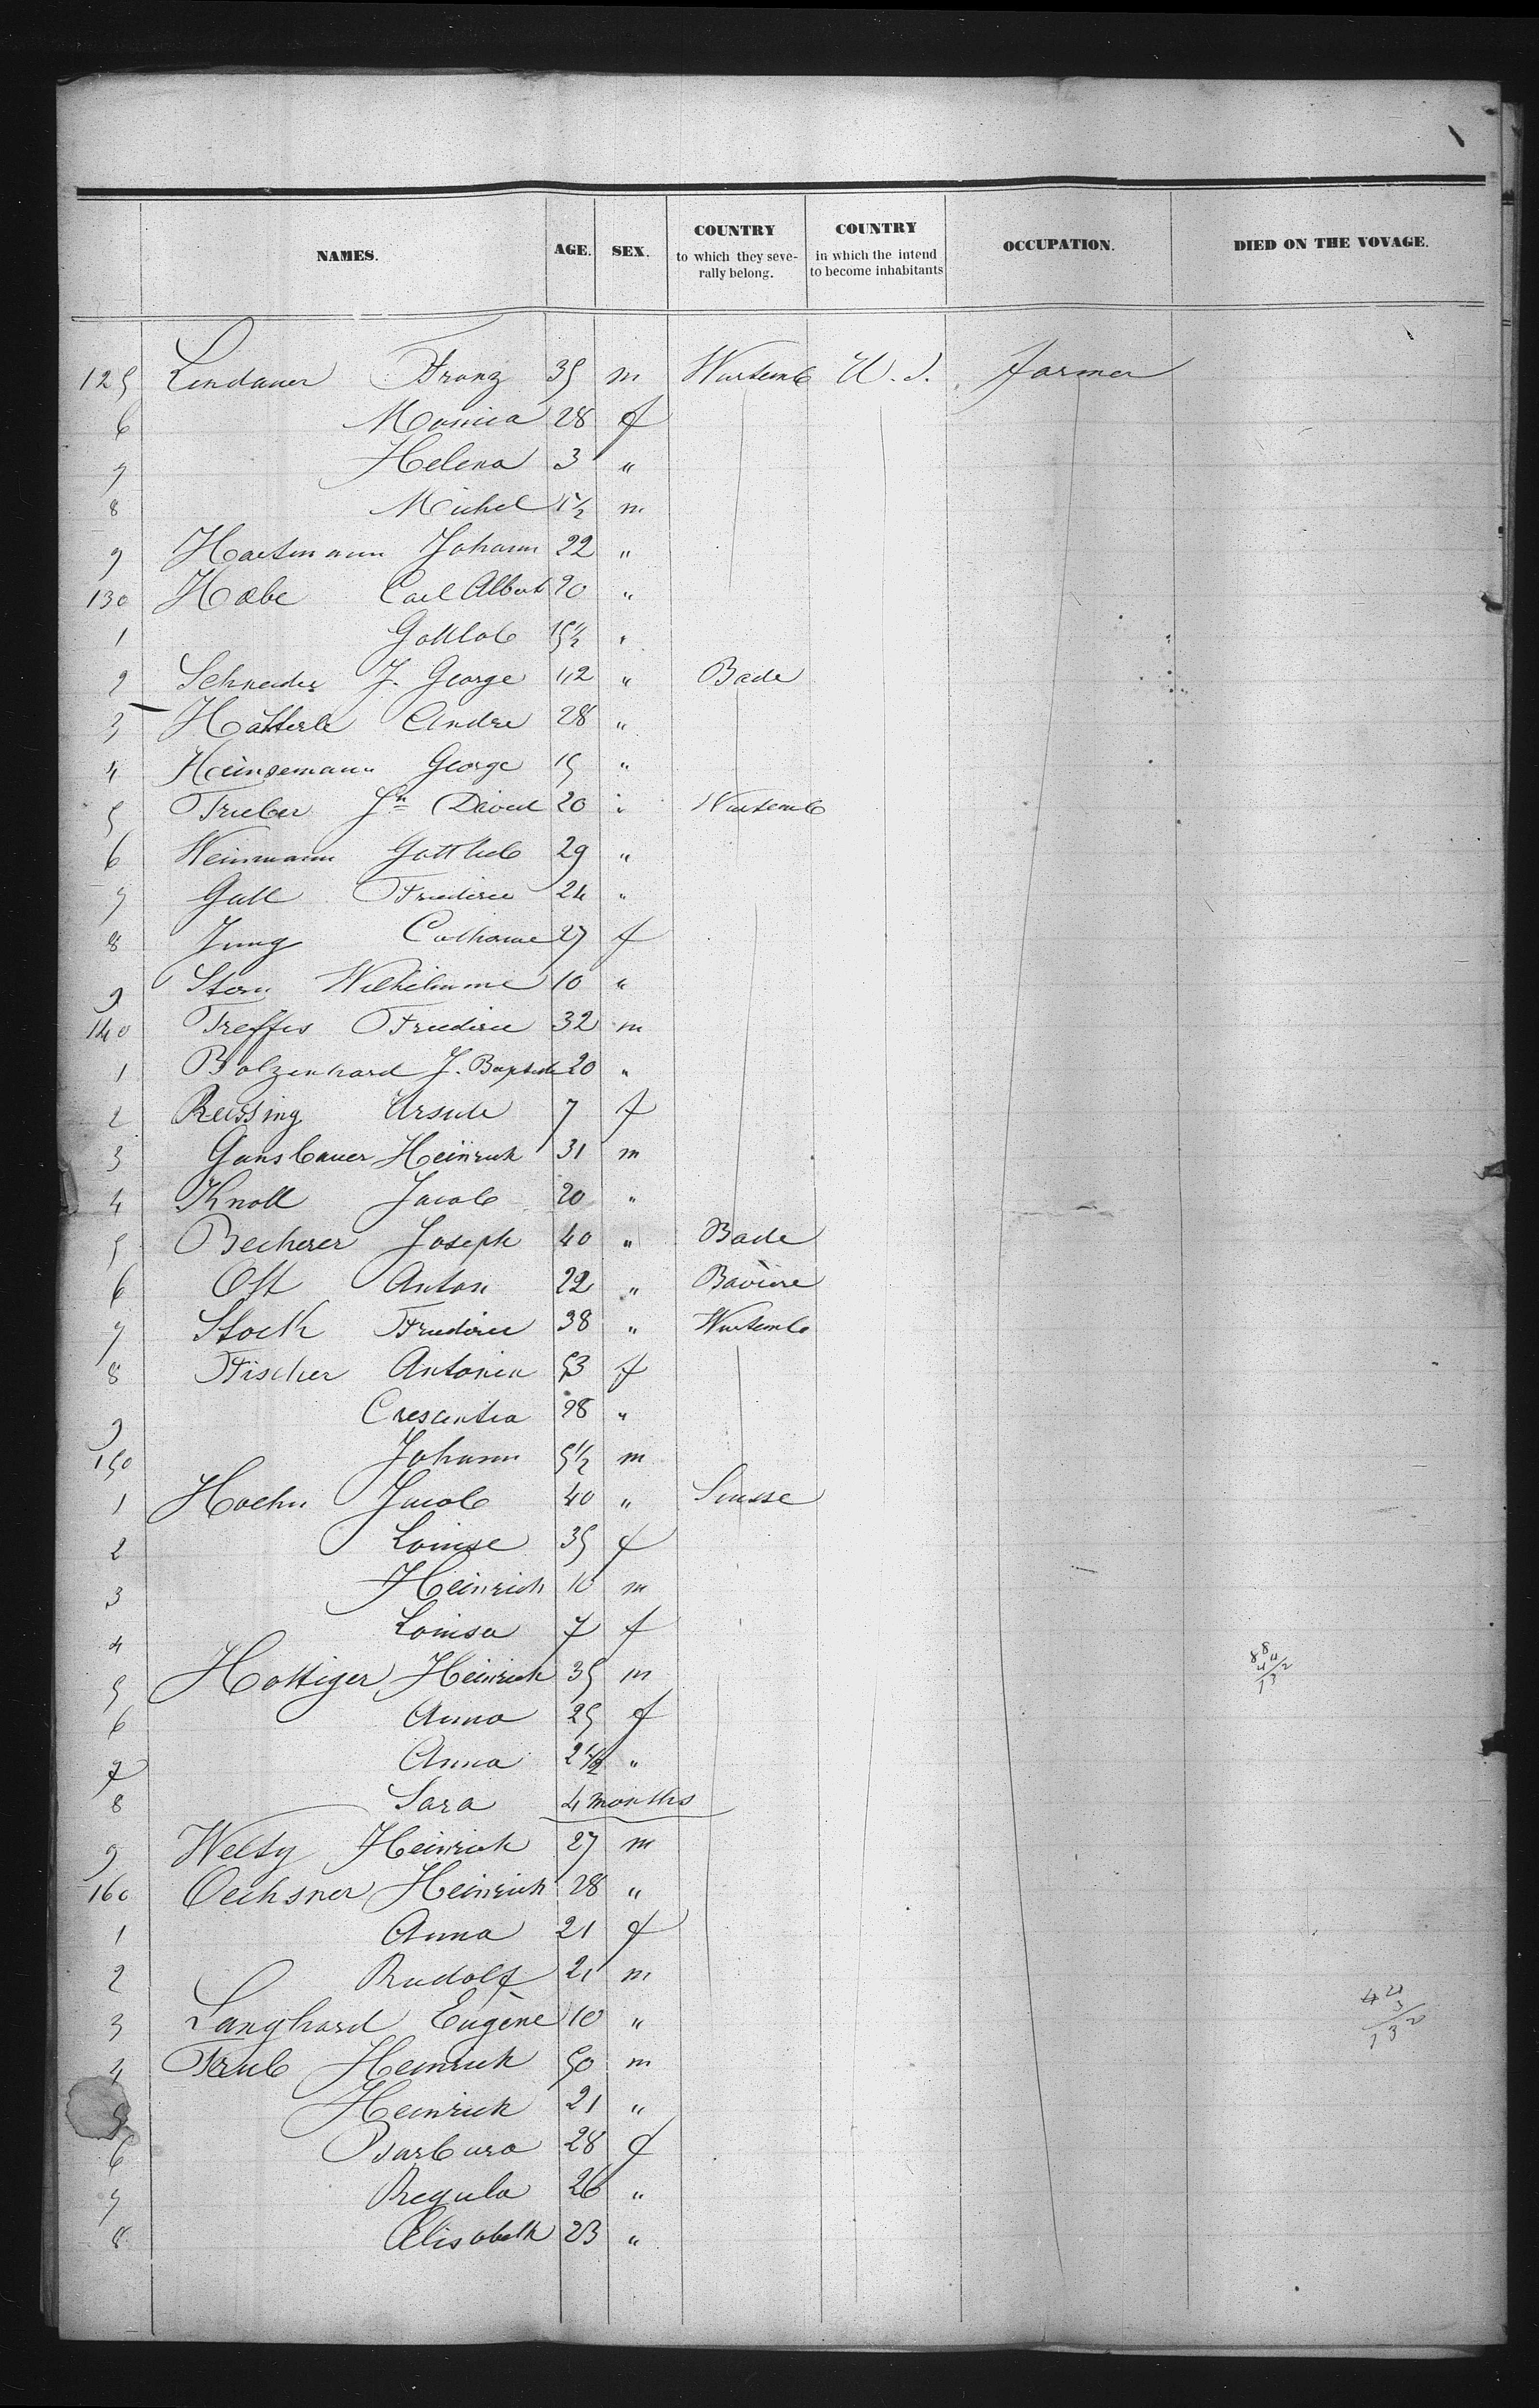 NAMES. AGE. SEX. COUNTRY to which they seve- rally belong. COUNTRY in which the intend to become inhabitants OCCUPATION. DIED ON THE VOYAGE.
125 Lindauer Franz 35 m Wurtemb U.S. farmer
6 Monica 28 f
7 Helena 3 "
8 Michel 1½ m
9 Hartmann Johann 22 "
130 Habe Carl Albert 20 "
1 Gottlob 15½ "
2 Schneider J. George 42 " Bade
3 Hätterle Andre 28 "
4 Heinsemann George 15 "
5 Trieber Jn David 20 " Wurtemb
6 Weinmann Gottlieb 29 "
7 Gall Friederic 24 "
8 Jung Catharine 27 f
9 Stern Wilhelmine 10 "
140 Treffis Friederic 32 m
1 Bolzenhard J. Baptiste 20 "
2 Reissing Ursule 7 f
3 Gansbauer Heinrich 31 m
4 Knoll Jacob 20 "
5 Becherer Joseph 40 " Bade
6 Ott Anton 22 " Bavière
7 Stock Friederic 38 " Wurtemb
8 Fischer Antonia 53 f
9 Crescentia 28 "
150 Johann 5½ m
1 Hoehn Jacob 40 " Suisse
2 Louise 35 f
3 Heinrich 10 m
4 Louisa 7 f
5 Hottiger Heinrich 35 m
6 Anna 25 f
7 Anna 2½ "
8 Sara 4 months
9 Welty Heinrich 27 m
160 Oechsner Heinrich 28 "
1 Anna 21 f
2 Rudolf 21 m
3 Langhard Eugène 10 "
4 Trub Heinrich 50 m
5 Heinrich 21 "
6 Barbara 28 f
7 Regula 26 "
8 Elisabeth 23 "